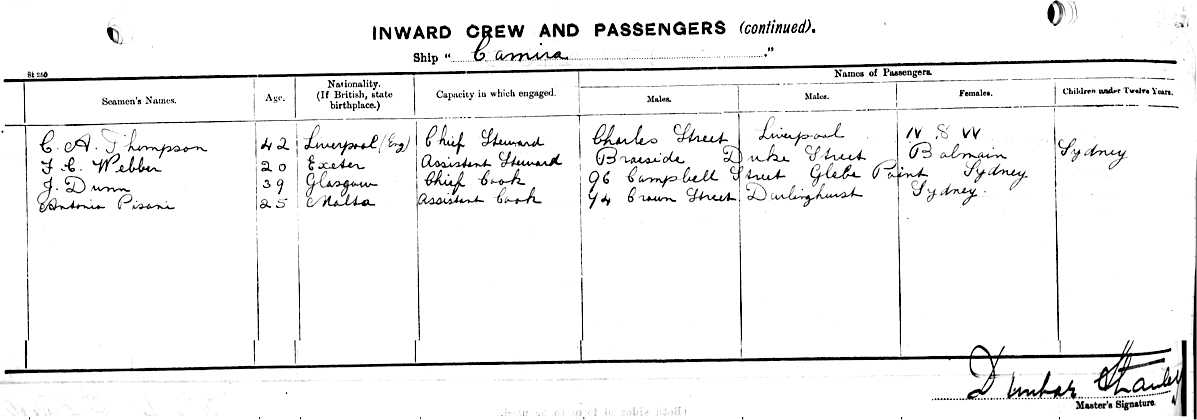 INWARD CREW AND PASSENGERS (continued).
Ship " Camira ."
St 250
Seamen's Names. Age. Nationality. (If British, state birthplace.) Capacity in which engaged. Names of Passengers. Males. Males. Females. Children under Twelve Years.
C. A. Thompson 42 Liverpool (Eng) Chief Steward Charles Street Liverpool N S W
F. C. Webber 20 Exeter Assistant Steward Braeside Duke Street Balmain Sydney
J. Dunn 39 Glasgow Chief Cook 96 Campbell Street Glebe Point Sydney
Antonio Pisani 25 Malta Assistant Cook 94 Crown Street Darlinghurst Sydney
Dunbar Stanley
Master's Signature.